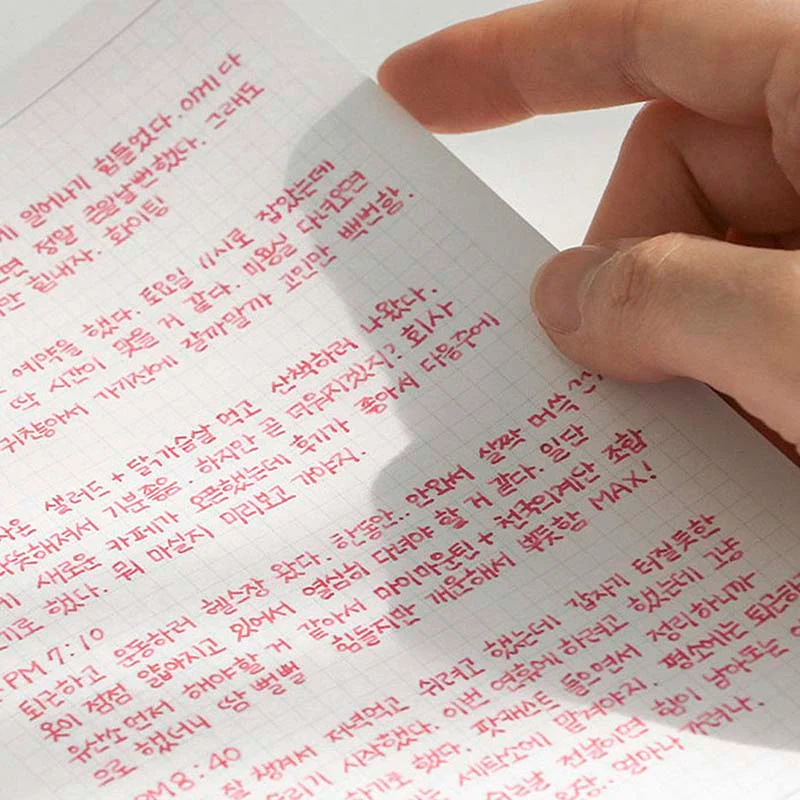 일어나기 힘들었다. 이게 다
면 정말 큰일날뻔했다. 그래도
만 힘내자. 화이팅
예약을 했다. 토요일 11시로 잡았는데
딱 시간이 맞을 거 같다. 미용실 다녀오면
귀찮아서 가기전에 갈까말까 고민만 백번함.
은 샐러드 + 닭가슴살 먹고 산책하러 나왔다.
따뜻해져서 기분좋음. 하지만 곧 더워지겠지? 회사
새로운 카페가 오픈했는데 후기가 좋아서 다음주에
기로 했다. 뭐 마실지 미리보고 가야지.
PM 7:10
퇴근하고 운동하러 헬스장 왔다. 한동안.. 안와서 살짝 머쓱
옷이 점점 얇아지고 있어서 열심히 다녀야 할 거 같다. 일단
유산소 먼저 해야할 거 같아서 마이마운틴 + 천국의계단 조합
으로 했더니 땀 뻘뻘 힘들지만 개운해서 뿌듯함 MAX!
PM 8:40
잘 챙겨서 저녁먹고 쉬려고 했는데 갑자기 터질듯한
정리하기 시작했다. 이번 연휴에 하려고 했는데 그냥
하기로 했다. 팟캐스트 들으면서 정리하니까
는 세탁소에 맡겨야지. 평소에는 퇴근하고
쉬는날 전날이면 힘이 남아도는
요장.. 얼마나 자려나.